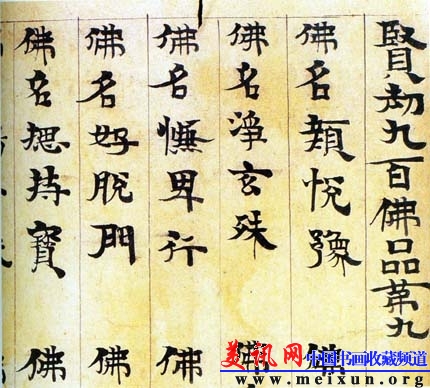 賢劫九百佛品第九
佛名類悅豫 佛
佛名淨玄殊 佛
佛名憮卑行 佛
佛名好脫門 佛
佛名揔持寶 佛
美讯网 中国书画收藏频道
www.meixun.org